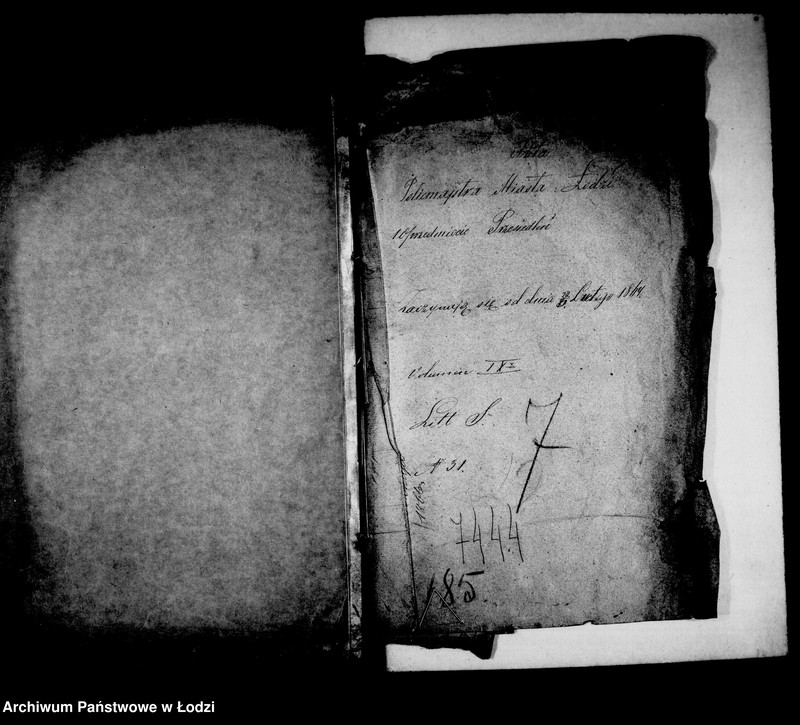 Akta
Policmajstra Miasta Łodzi
w przedmiocie Przesiedleń
zaczynają się od dnia Lutego 1864.
Volumen IX
Litt S.
N 31.
7
7444
185.
Archiwum Państwowe w Łodzi